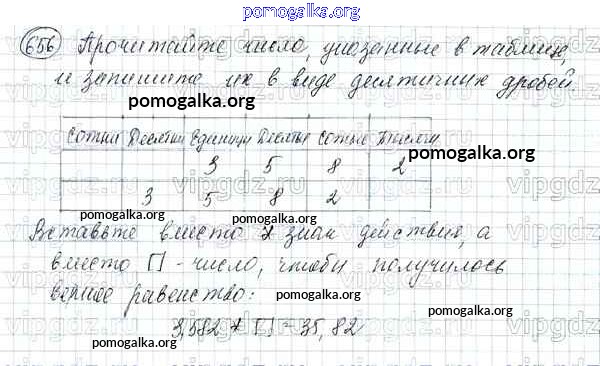 pomogalka.org
656 Прочитайте числа, указанные в таблице,
и запишите их в виде десятичных дробей
pomogalka.org
Сотни Десятки Единицы Десятые Сотые Тысячн
3 5 8 2
3 5 8 2
pomogalka.org pomogalka.org pomogalka.org
Вставьте вместо * знак действия, а
вместо □ - число, чтобы получилось
pomogalka.org
верное равенство:
pomogalka.org
3,582 * □ = 35,82
pomogalka.org pomogalka.org
vipgdz.ru vipgdz.ru vipgdz.ru